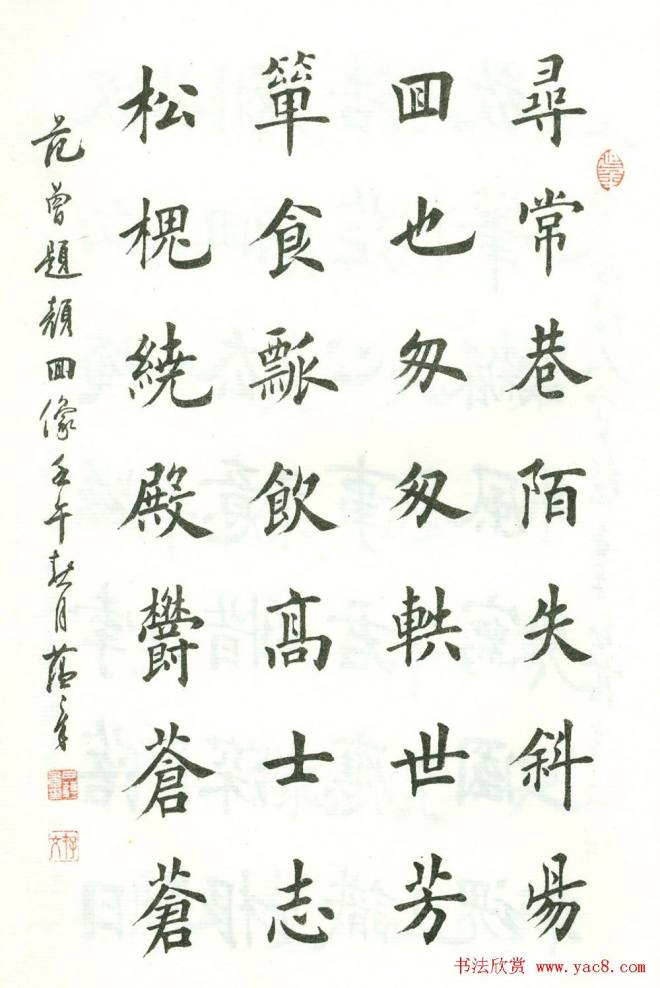 尋常巷陌失斜陽
回也匆匆軼世芳
簞食瓢飲高士志
松槐繞殿鬱蒼蒼
范曾題顏回像壬午秋月蘊章
书法欣赏 www.yac8.com